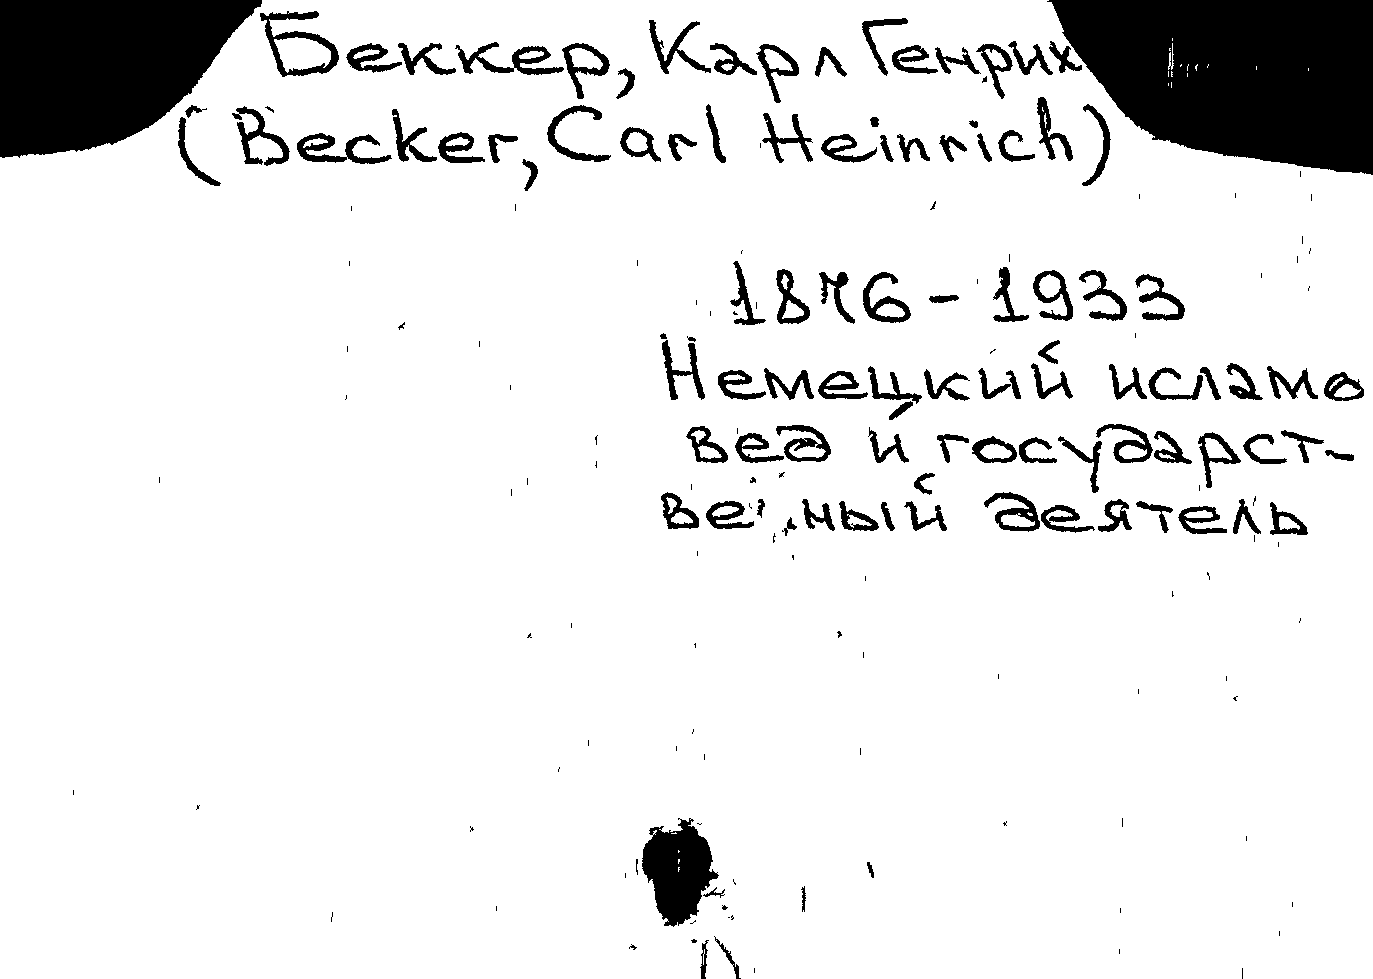 Беккер, Карл Генрих
(Becker, Carl Heinrich)
1876-1933
Немецкий исламо
вед и государст-
венный деятель